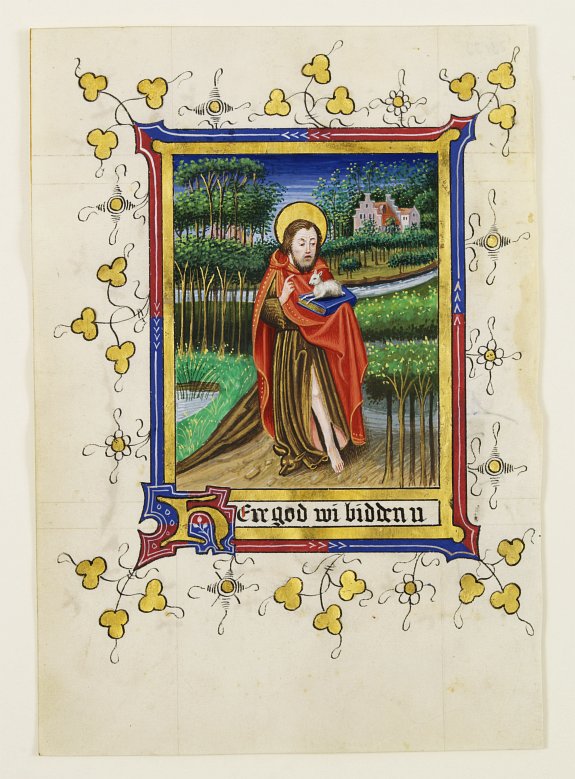 HEre god wi bidden u